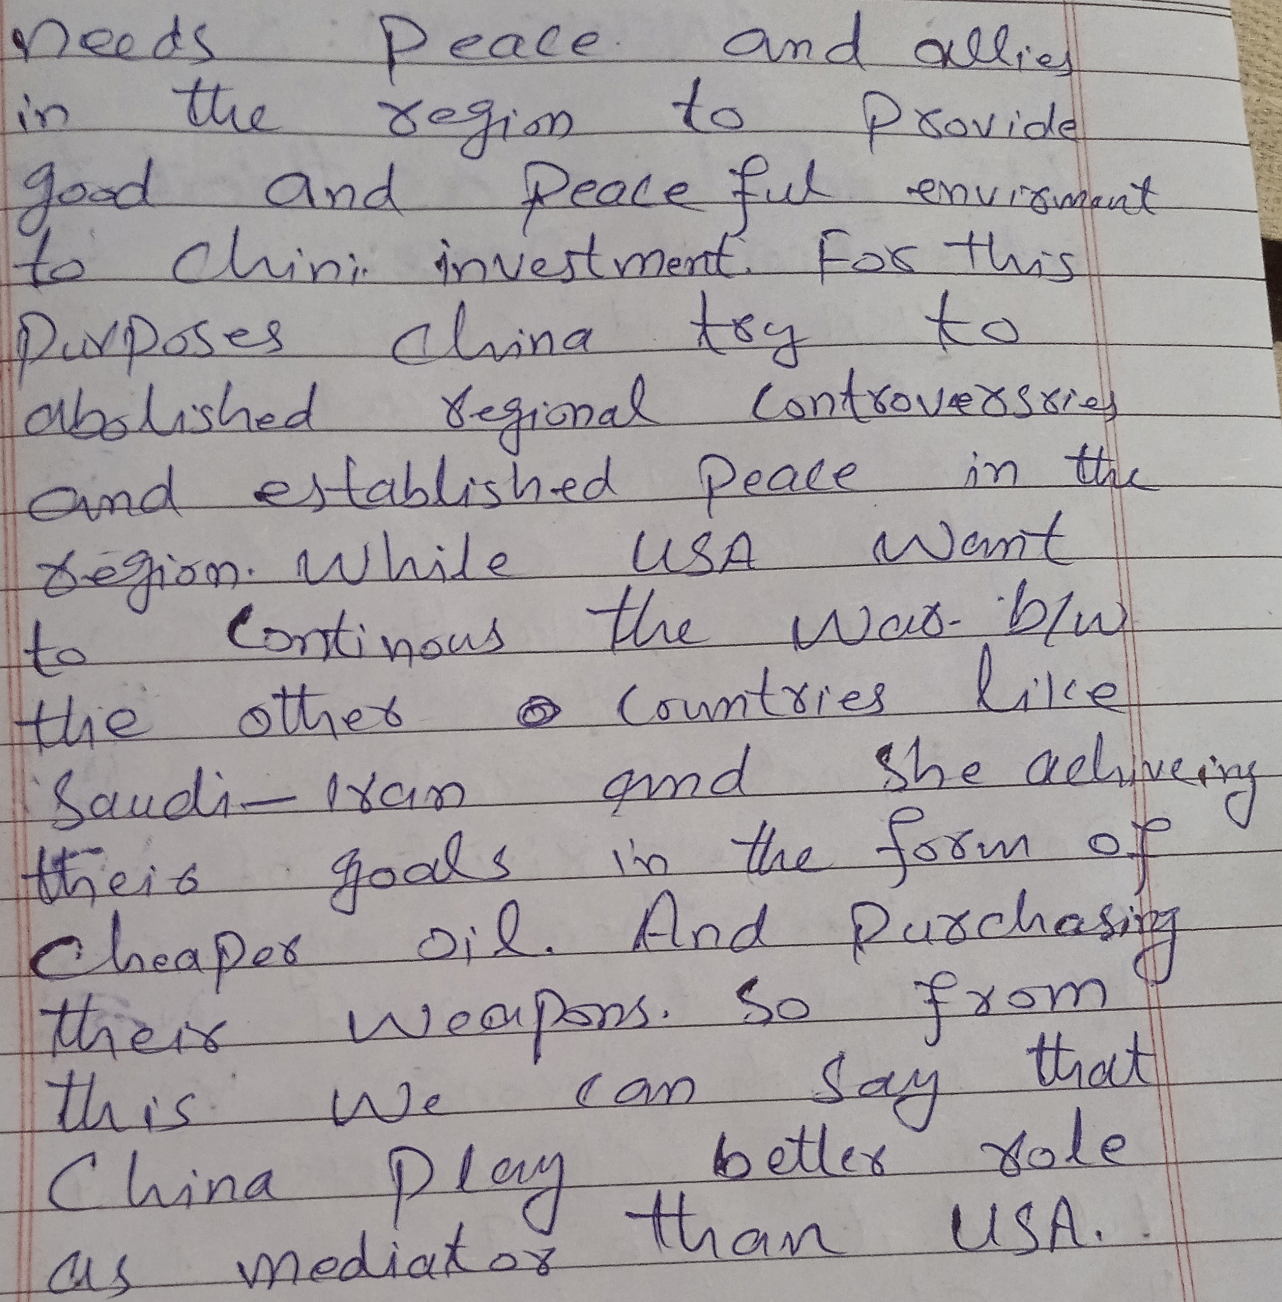 needs peace and allies
in the region to provide
good and peaceful envirment
to Chini investment. For this
purposes China try to
abolished regional controversries
and established peace in the
region. While USA want
to continous the war b/w
the other countries like
Saudi-Iran and she achiveing
their goals in the form of
cheaper oil. And purchasing
their weapons. So from
this we can say that
China play better role
as mediator than USA.